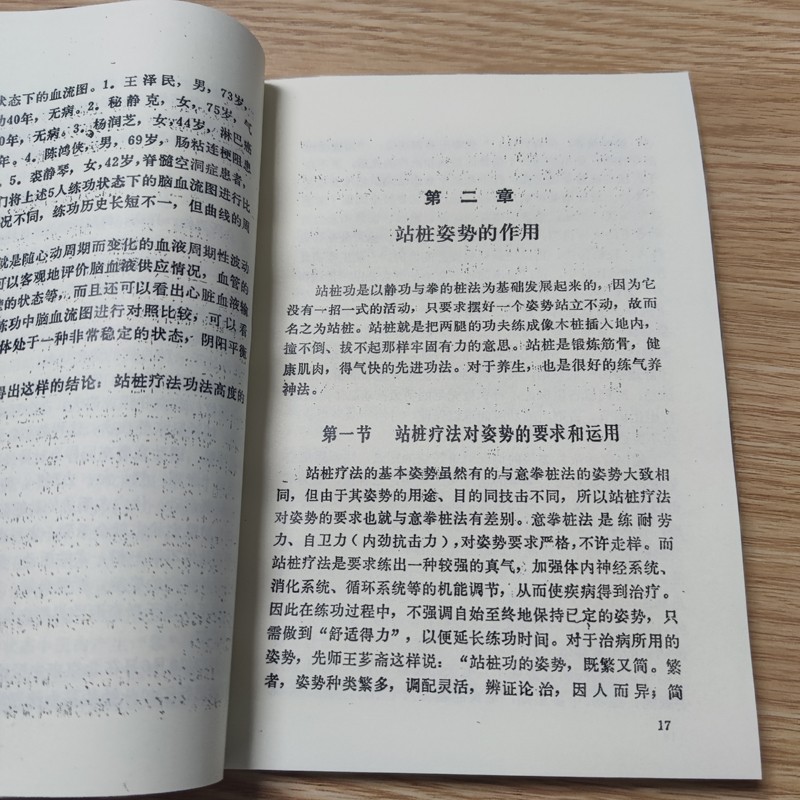 状态下的血流图。1. 王泽民，男，73岁，
功40年，无病。2. 秘静克，女，75岁，气
0年，无病。3. 杨润芝，女，44岁，淋巴癌
年。4. 陈鸿侠，男，69岁，肠粘连梗阻患
。5. 裘静琴，女，42岁，脊髓空洞症患者，
们将上述5人练功状态下的脑血流图进行比
况不同，练功历史长短不一，但曲线的周
就是随心动周期而变化的血液周期性波动
可以客观地评价脑血液供应情况，血管的
的状态等，而且还可以看出心脏血液输
练功中脑血流图进行对照比较，可以看
体处于一种非常稳定的状态，阴阳平衡
得出这样的结论：站桩疗法功法高度的
第二章
站桩姿势的作用
站桩功是以静功与拳的桩法为基础发展起来的，因为它
没有一招一式的活动，只要求摆好一个姿势站立不动，故而
名之为站桩。站桩就是把两腿的功夫练成像木桩插入地内，
撞不倒、拔不起那样牢固有力的意思。站桩是锻炼筋骨，健
康肌肉，得气快的先进功法。对于养生，也是很好的练气养
神法。
第一节 站桩疗法对姿势的要求和运用
站桩疗法的基本姿势虽然有的与意拳桩法的姿势大致相
同，但由于其姿势的用途、目的同技击不同，所以站桩疗法
对姿势的要求也就与意拳桩法有差别。意拳桩法是练耐劳
力、自卫力（内劲抗击力），对姿势要求严格，不许走样。而
站桩疗法是要求练出一种较强的真气，加强体内神经系统、
消化系统、循环系统等的机能调节，从而使疾病得到治疗。
因此在练功过程中，不强调自始至终地保持已定的姿势，只
需做到“舒适得力”，以便延长练功时间。对于治病所用的
姿势，先师王芗斋这样说：“站桩功的姿势，既繁又简。繁
者，姿势种类繁多，调配灵活，辨证论治，因人而异；简
17